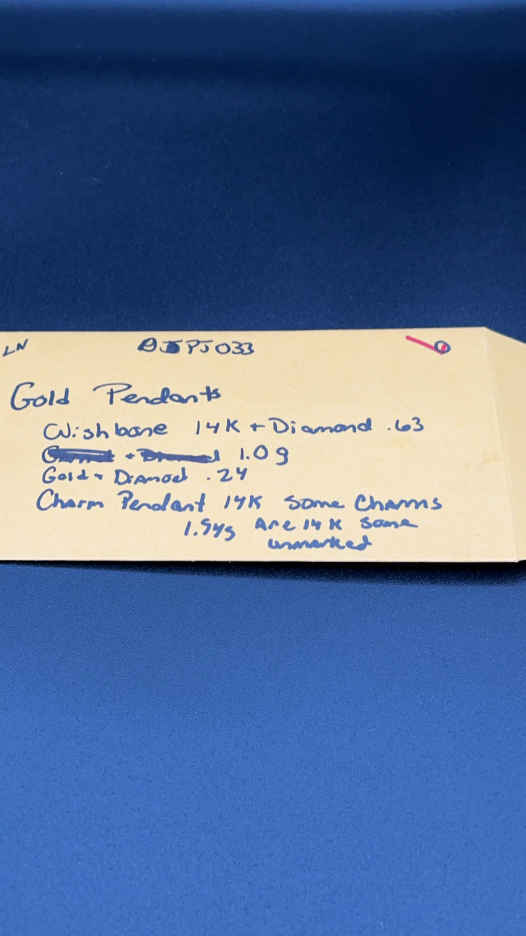 LN
PJ033
Gold Pendants
Wishbone 14K + Diamond .63
1.0g
Gold + Diamod .24
Charm Pendant 14K Some Charms
1.94g Are 14K Some
unmarked